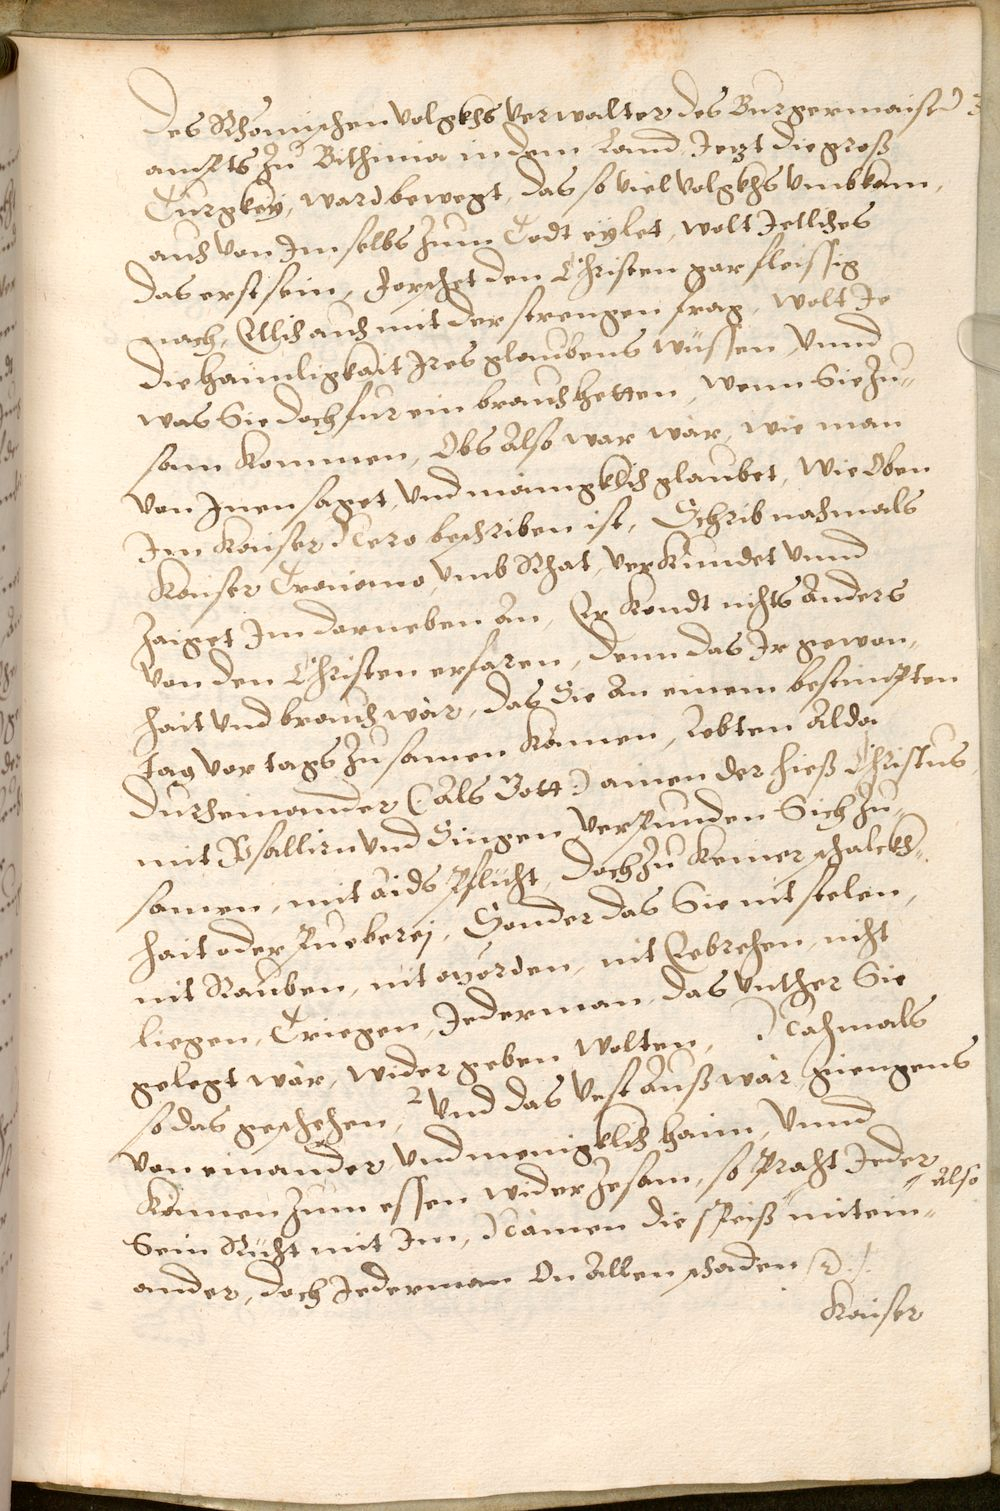 Des Rhömischen volgkhs verwalter des Burgermaister
ampts zu Bithinia in dem Land Jezt die groß
Türgkey, ward bewegt, das so viel volgkhs umbkam,
auch von Im selbs zum Todt eylet, wolt Jetliches
das erst sein, forschet den Christen gar fleissig
nach, Ettlich auch mit der strengen frag, wolt Je
die haimligkait Ires glaubens wüssen, Unnd
was Sie doch fur ein brauch hetten, wenn Sie zu-
sam kommen, Obs Also war wär, wie man
von Inen saget, und mänigklich glaubet, Wie Oben
Im Kaiser Nero beschriben ist, Schrib nachmals
Kaiser Traiano, umb Rhat, verkundet unnd
zaiget Im darneben An, Er kondt nichts Anders
von den Christen erfaren, denn das Ir gewon-
hait und brauch wär, das Sie An einem bestimpten
tag vor tags zusamen kamen, Lobten Alda
durcheinander (: Als Gott :) ainen der hieß Christus,
mit Psallirn und Singen, verpunden Sich zu-
samen, mit aids Pflicht, doch zu keiner schalckh-
hait oder Pueberej, Sonder das Sie nit stelen,
nit Rauben, nit mörden, nit Eebrechen, nicht
liegen, Triegen, Jederman, das hinther Sie
gelegt wär, wider geben wolten, Nachmals
so das geschehen, und das vest Auß wär, giengens
von einander und menigklich haim, Unnd
kämen zum essen wider zesam, so pracht Jeder
Also
Sein Richt mit Im, Nämen die speiß mitein-
ander, doch Jederman On Allen schaden
Kaiser